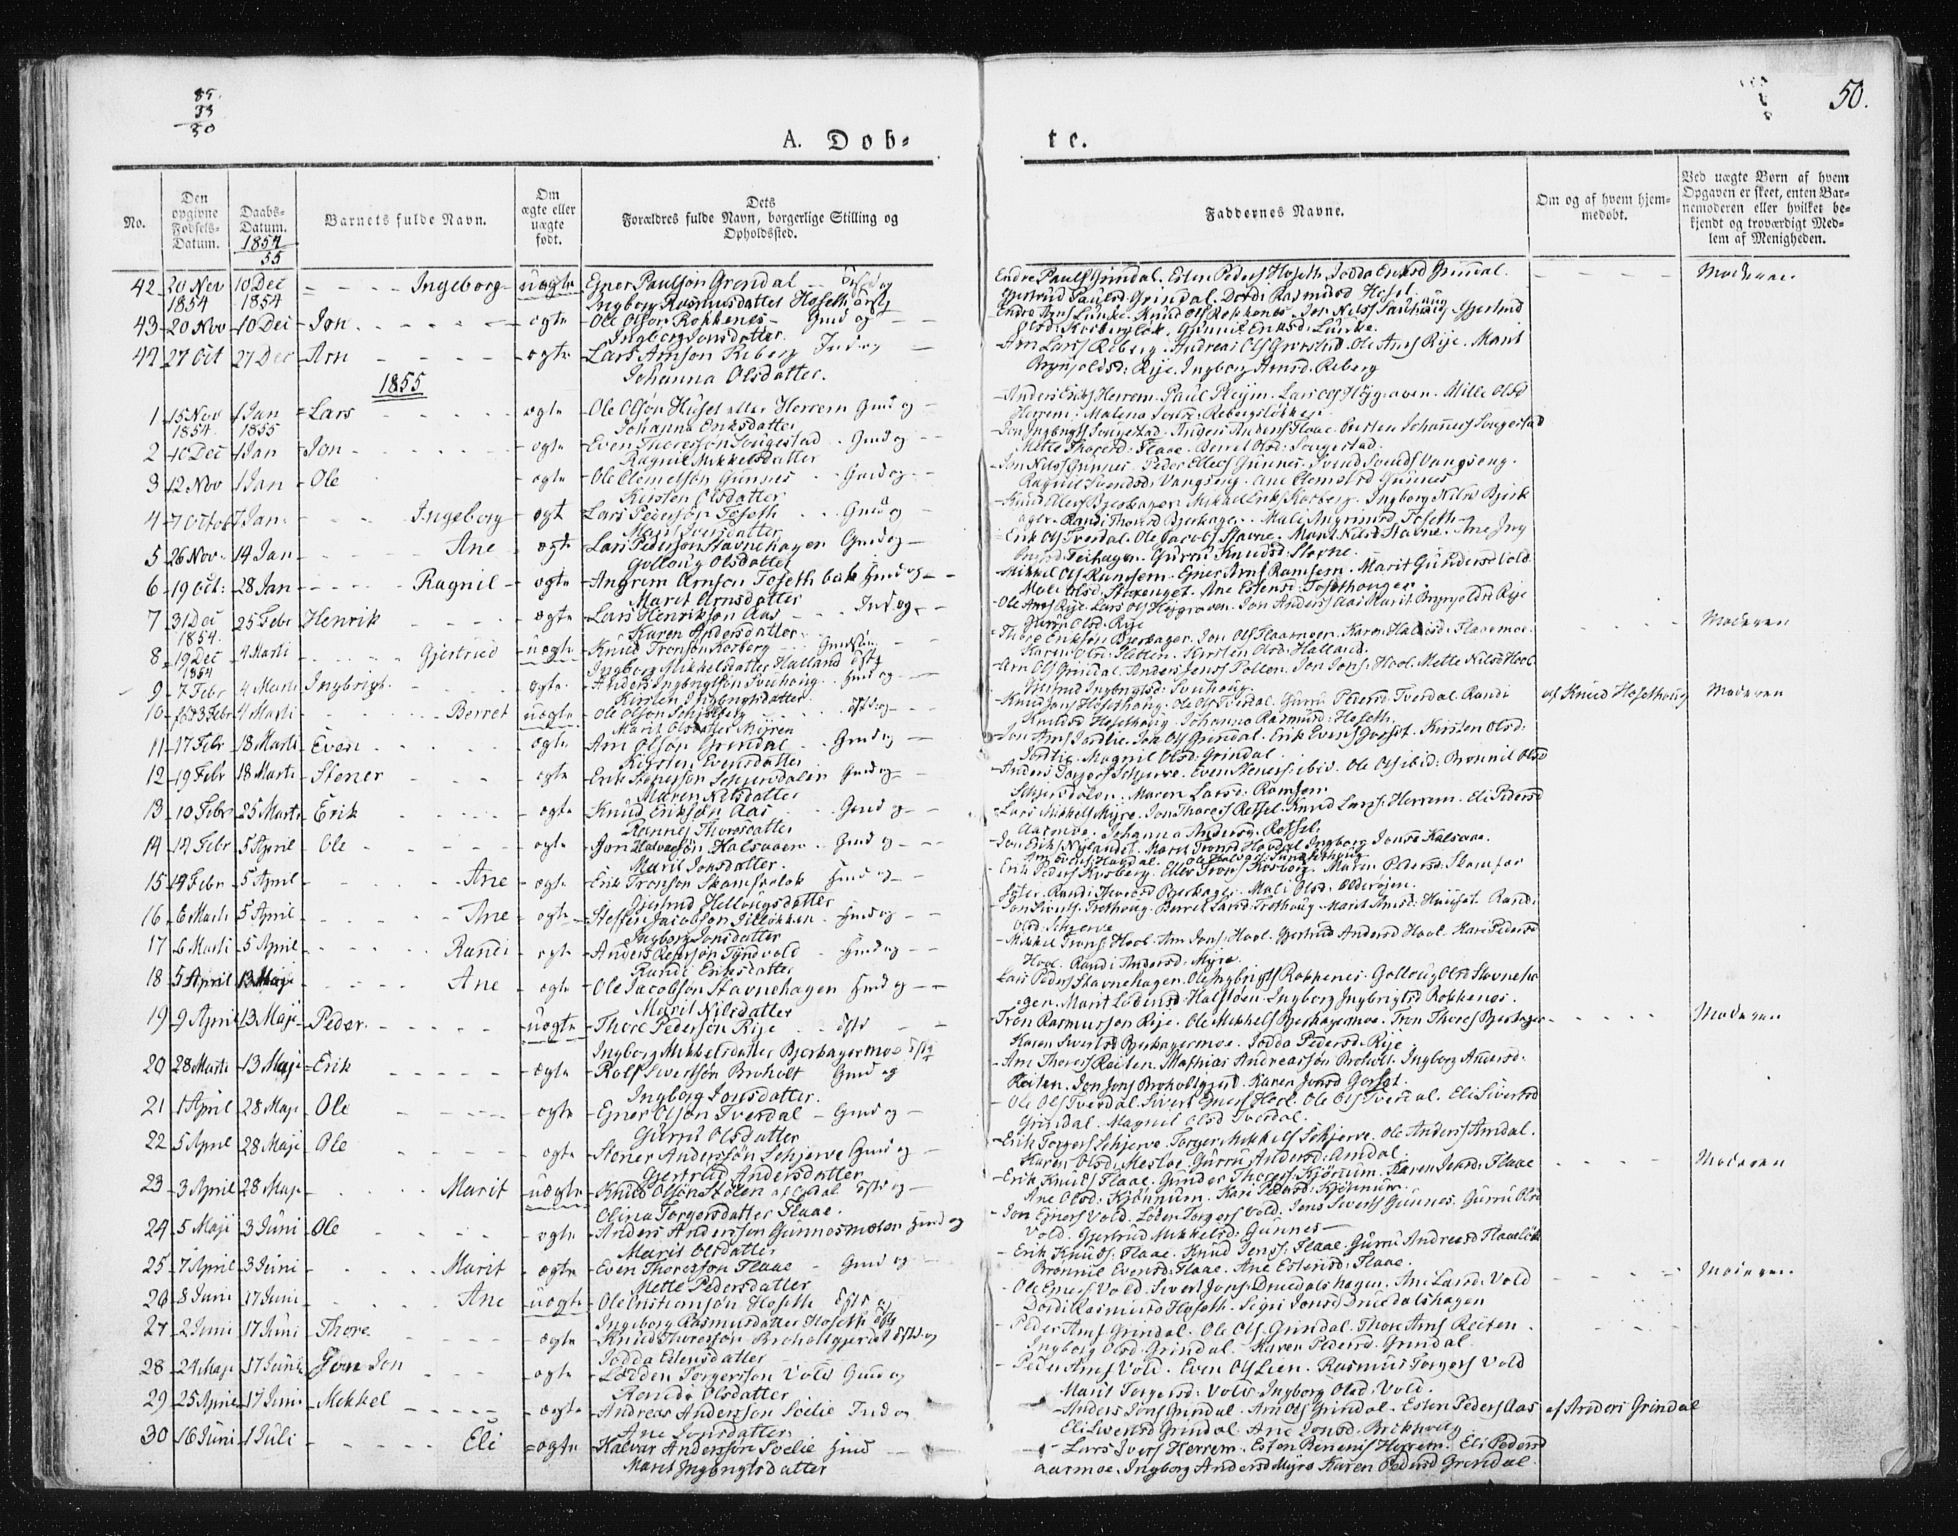 85.
33
50
50.
A. Dob-
te.
No.
Den opgivne Fødsels-Datum.
Daabs-Datum.
1854
55
Barnets fulde Navn.
Om ægte eller uægte født.
Dets Forældres fulde Navn, borgerlige Stilling og Opholdssted.
Faddernes Navne.
Om og af hvem hjemmedøbt.
Ved uægte Børn af hvem Opgaven er skeet, enten Barnemoderen eller hvilket bekjendt og troværdigt Medlem af Menigheden.
42 20 Nov 1854 10 Dec 1854 Ingeborg uægte Ejner Paulsøn Grendal
Ingborg Rasmusdatter Hoseth
Endre Pauls Grindal. Esten Peders Hoseth. Jodda Eriksd Grindal.
Gjertrud Paulsd. Grindal. Dordi Rasmusd Hoset.
Moderen
43 20 Nov 10 Dec Jon ægte Ole Olsøn Rokkenes Gmd og
Ingeborg Jonsdatter
44 27 Oct 27 Dec Arn ægte Lars Arnsøn Reberg Ind og
Johanna Olsdatter.
Arn Lars Reberg. Andreas Ols. Ole Arns Rije. Marit
Brynjoldsd: Rije. Ingborg Arnsd: Reberg
1855
1 15 Nov 1854 1 Jan 1855 Lars ægte Ole Olsøn Huset eller Herrem Gmd og
Johanna Eriksdatter
Anders Eriks Herrem. Paul Lars Ols Høggraven. Mille Olsd
Herrem. Malena Jonsd. Rebergsløkken
2 10 Dec 1 Jan Jon ægte Even Thoresøn Songestad Gmd og
Ragnil Mikkelsdatter
Mette Thoresd: Flaae. Berret Olsd: Songestad.
3 12 Nov 1 Jan Ole ægte Ole Clemetsøn Gunnes Gmd og
Kirsten Olsdatter
Jon Nils Gunnes. Peder Elles Gunnes. Svend Svends Vangseng.
Ragnil Svendsd: Vangseng. Ane Clemetsd Gunnes
4 7 Octob 7 Jan Ingeborg ægt Lars Pedersøn Toseth Gmd og
Marit Iversdatter
Ingborg Nilsd Bjerk
ager. Randi Thoresd Bjerkager. Mali Angrimsd Toseth
5 26 Nov. 14 Jan Ane ægte Lars Pedersøn Stavnehagen Gmd og
Gollaug Olsdatter
Erik Ols Tverdal. Ole Jacobs Stavne. Marit Nilsd Stavne. Ane Ing
6 19 Oct: 28 Jan Ragnil ægte Angrim Arnsøn Toseth Gmd og
Marit Arnsdatter
Mikkel Ols Ramsem. Ejner Arns Ramsem. Marit Gundersd Vold.
Ane Estensd: Tosethouger
7 31 Dec 1854 25 Febr Henrik ægte Lars Henriksøn Aas Ind og
Karen Andersdatter
Ole Arns Rije. Lars Ols Høggraven. Jon Anders Aas Marit Brynjoldsd Rije
Gurru Olsd. Rije
8 19 Dec 1854 4 Marti Gjertrud uægte Knud Tronsøn Korberg
Ingborg Mikkelsdatter Halland
Thore Eriksøn Bjerkager. Jon Ols Flaamoen.
Karen Olsd: Fletten. Kirsten Olsd: Halland.
Moderen
9 7 Febr 4 Marti Ingbrigt ægte Anders Ingbrigtsøn Svehoug Gmd og
Kirsten Ingbrigtsdatter
Arn Ols Grindal. Anders Jons Follon. Jon Jons: Hool. Mette Nilsd Hool
Gjertrud Ingbrigtsd: Svehoug
10 3 Febr 4 Marti Berret uægte Ole Olsøn
Marit Olsdatter Myren
Knud Jons Hosethoug. Ole Ols Tverdal. Gurru Pedersd: Tverdal. Randi
Knudsd Hosethoug. Johanna Rasmusd: Hoseth.
af Knud Hosethoug Moderen
11 17 Febr 18 Marti Even ægte Arn Olsøn Grindal Gmd og
Kirsten Evensdatter
Jon Arns Jordlie. Jon Ols Grindal. Erik Evens Gorset. Kirsten Olsd:
Jordlie. Magnil Olsd: Grindal.
12 19 Febr 18 Marti Stener ægte Erik Stenersøn Schjerdalen Gmd og
Maren Nilsdatter
Anders Torgers Schjerve. Even Steners ibid. Ole Ols ibid: Brønnil Olsd
Schjerdalen. Maren Larsd: Ramsem
13 10 Febr 25 Marti Erik ægte Knud Eriksøn Aas Gmd og
Rønnes Thoresdatter
Lars Mikkels Myre. Jon Thores Retsel. Knud Lars: Herrem. Eli Pedersd
Aarmoe. Johanna Andersd. Retsel.
14 14 Febr 5 April Ole ægte Jon Halvorsøn Halsaaen Gmd og
Marit Jonsdatter.
Jon Eriks Nylandet. Marit Tronsd Hovdal Ingborg Jonsd Halsaae.
15 14 Febr 5 April Ane ægte Erik Tronsøn Skamferlok Gmd og
Gjertrud Hellougsdatter
Erik Peders Korsberg. Elles Trons Korsberg. Maren Pedersd: Skamfer
Randi Thoresd Bjerkager. Mali Olsd: Olderøjen.
16 6 Marti 5 April Ane ægte Steffen Jacobsøn Gmd og
Ingborg Jonsdatter
Jon Siverts Trethoug. Berret Larsd: Trethoug. Marit Arnsd: Huuset. Randi
Olsd: Schjerve
17 6 Marti 5 April Randi ægte Anders Pedersøn Tyndvold Gmd og
Randi Eriksdatter
Mikkel Trons: Hool. Arn Jons: Hool. Gjertrud Andersd Hool. Kari Pedersd
Hool. Randi Andersd: Myre.
18 5 April 13 Maji Ane ægte Ole Jacobsøn Stavnehagen Gmd og
Marit Nilsdatter
Lars Peders Stavnehagen. Ole Ingbrigts Rokkenes. Gollaug Olsd Stavneha
gen. Marit Lodensd: Halstøen. Ingborg Ingbrigtsd Rokkenes.
19 9 April 13 Maji Peder uægte Thore Pedersøn Rije
Ingborg Mikkelsdatter Bjerkagermoe
Tron Rasmussøn Rije. Ole Mikkels Bjerkagermoe. Tron Thores Bjerkager
Karen Sivertsd Bjerkagermoe. Jodda Pedersd: Rije
Moderen
20 28 Marti 13 Maji Erik ægte Rolf Sivertsøn Broholt Gmd og
Ingborg Jonsdatter.
Arn Thores Reiten. Mathias Andreassøn Broholt. Ingborg Andersd:
Reiten. Jon Jons Broholtgjerd. Karen Jonsd Gorset.
21 1 April 28 Maji Ole ægte Ejner Olsøn Tverdal Gmd og
Gurru Olsdatter
Ole Ols Tverdal. Sivert Ejners Hool. Ole Ols Tverdal. Eli Sivertsd
Grindal. Magnil Olsd Tverdal.
22 5 April 28 Maji Ole ægte Stener Andersøn Schjerve Gmd og
Gjertrud Andersdatter
Erik Torgers Schjerve. Torger Mikkels Schjerve. Ole Anders Amdal.
Karen Olsd: Mesloe. Gurru Andersd: Amdal.
23 3 April 28 Maji Marit uægte Knud Olsøn Stølen af Opdal
Olina Torgersdatter Flaae.
Erik Knuds Flaae. Gunder Thores: Kjønnum. Karen Jonsd: Flaae
Ane Olsd: Kjønnum. Kari Pedersd: Kjønnum.
Moderen
24 5 Maji 3 Juni Ole ægte Anders Andersøn Gunnesmoen Gmd og
Marit Olsdatter
Jon Ejners Vold. Loden Torgers Vold: Jens Siverts Gunnes. Gurru Olsd
Vold. Gjertrud Mikkelsd: Gunnes
25 7 April 3 Juni Marit ægte Even Thoresøn Flaae Gmd og
Mette Pedersdatter
Erik Knuds: Flaae. Knud Jons: Flaae. Gurru Andreasd Flaaeløk
Brønnil Evensd: Flaae. Ane Estensd: Flaae.
26 8 Juni 17 Juni Ane uægte Ole Hoseth
Ingeborg Rasmusdatter Hoseth
Ole Ejners Vold. Sivert Jons Druedalshagen. Ane Larsd: Vold
Dordi Rasmusd Hoseth. Sigri Jonsd Druedalshagen
Moderen
27 2 Juni 17 Juni Thore ægte Knud Thoresøn Broholtgjerdet
Jodda Estensdatter
Peder Arns Grindal. Ole Ols Grindal. Thore Arns Reiten.
Ingborg Olsd Grindal. Karen Pedersd. Grindal.
28 24 Maji 17 Juni Jon ægte Lodden Torgersøn Vold Gmd og
Olsdatter
Peder Arns Vold. Even Ols Leen. Rasmus Torgers Vold
Marit Torgersd: Vold. Ingborg Olsd: Vold.
29 25 April 17 Juni Mekkel ægte Andreas Andersøn Soelie Ind og
Ane Jonsdatter
Anders Jons Grindal. Arn Ols Grindal. Esten Peders Aas
Eli Sivertsd Grindal Ane Jonsd:
af Anders Grindal
30 16 Juni 1 Juli Eli ægte Halvar Andersøn Soelie Gmd
Marit Ingbrigtsdatter
Lars Ivers Herrem. Esten Herrem. Eli Pedersd
aarmoe. Ingborg Andersd Myre Karen Pedersd Grindal